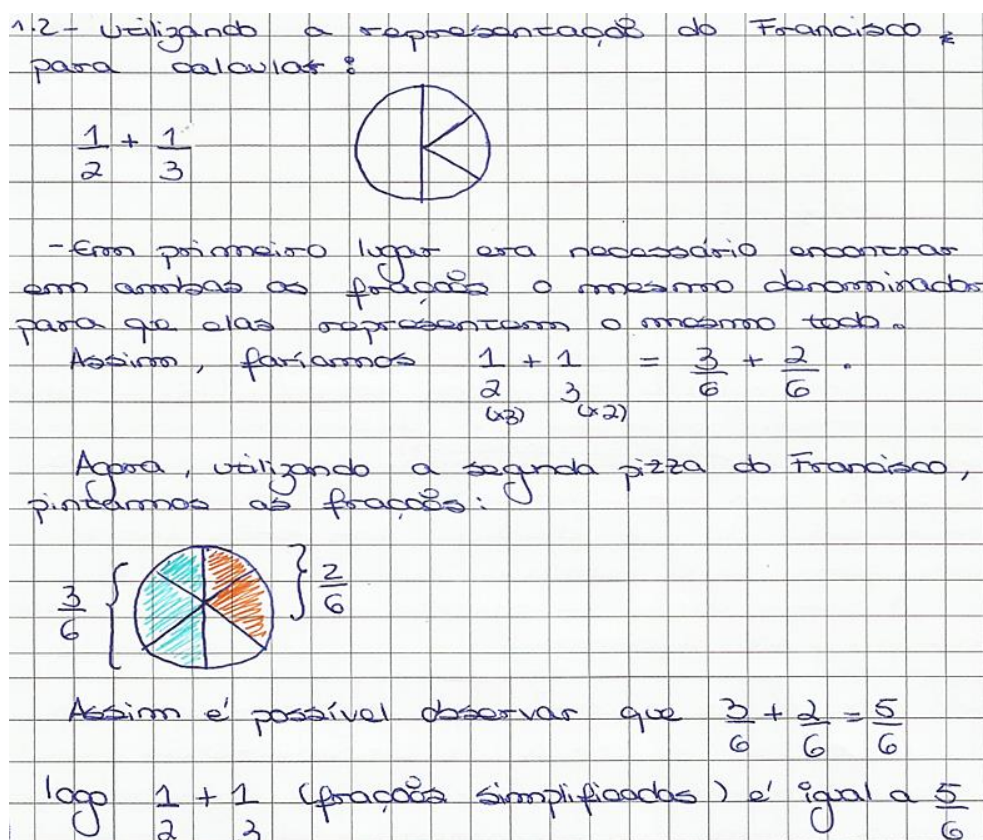 1.2 - Utilizando a representação do Francisco
para calcular:
1/2 + 1/3
- Em primeiro lugar era necessário encontrar
em ambas as frações o mesmo denominador
para que elas representem o mesmo todo.
Assim, faríamos 1/2 (x3) + 1/3 (x2) = 3/6 + 2/6.
Agora, utilizando a segunda pizza do Francisco,
pintarmos as frações:
3/6 { } 2/6
Assim é possível observar que 3/6 + 2/6 = 5/6
logo 1/2 + 1/3 (frações simplificadas) é igual a 5/6